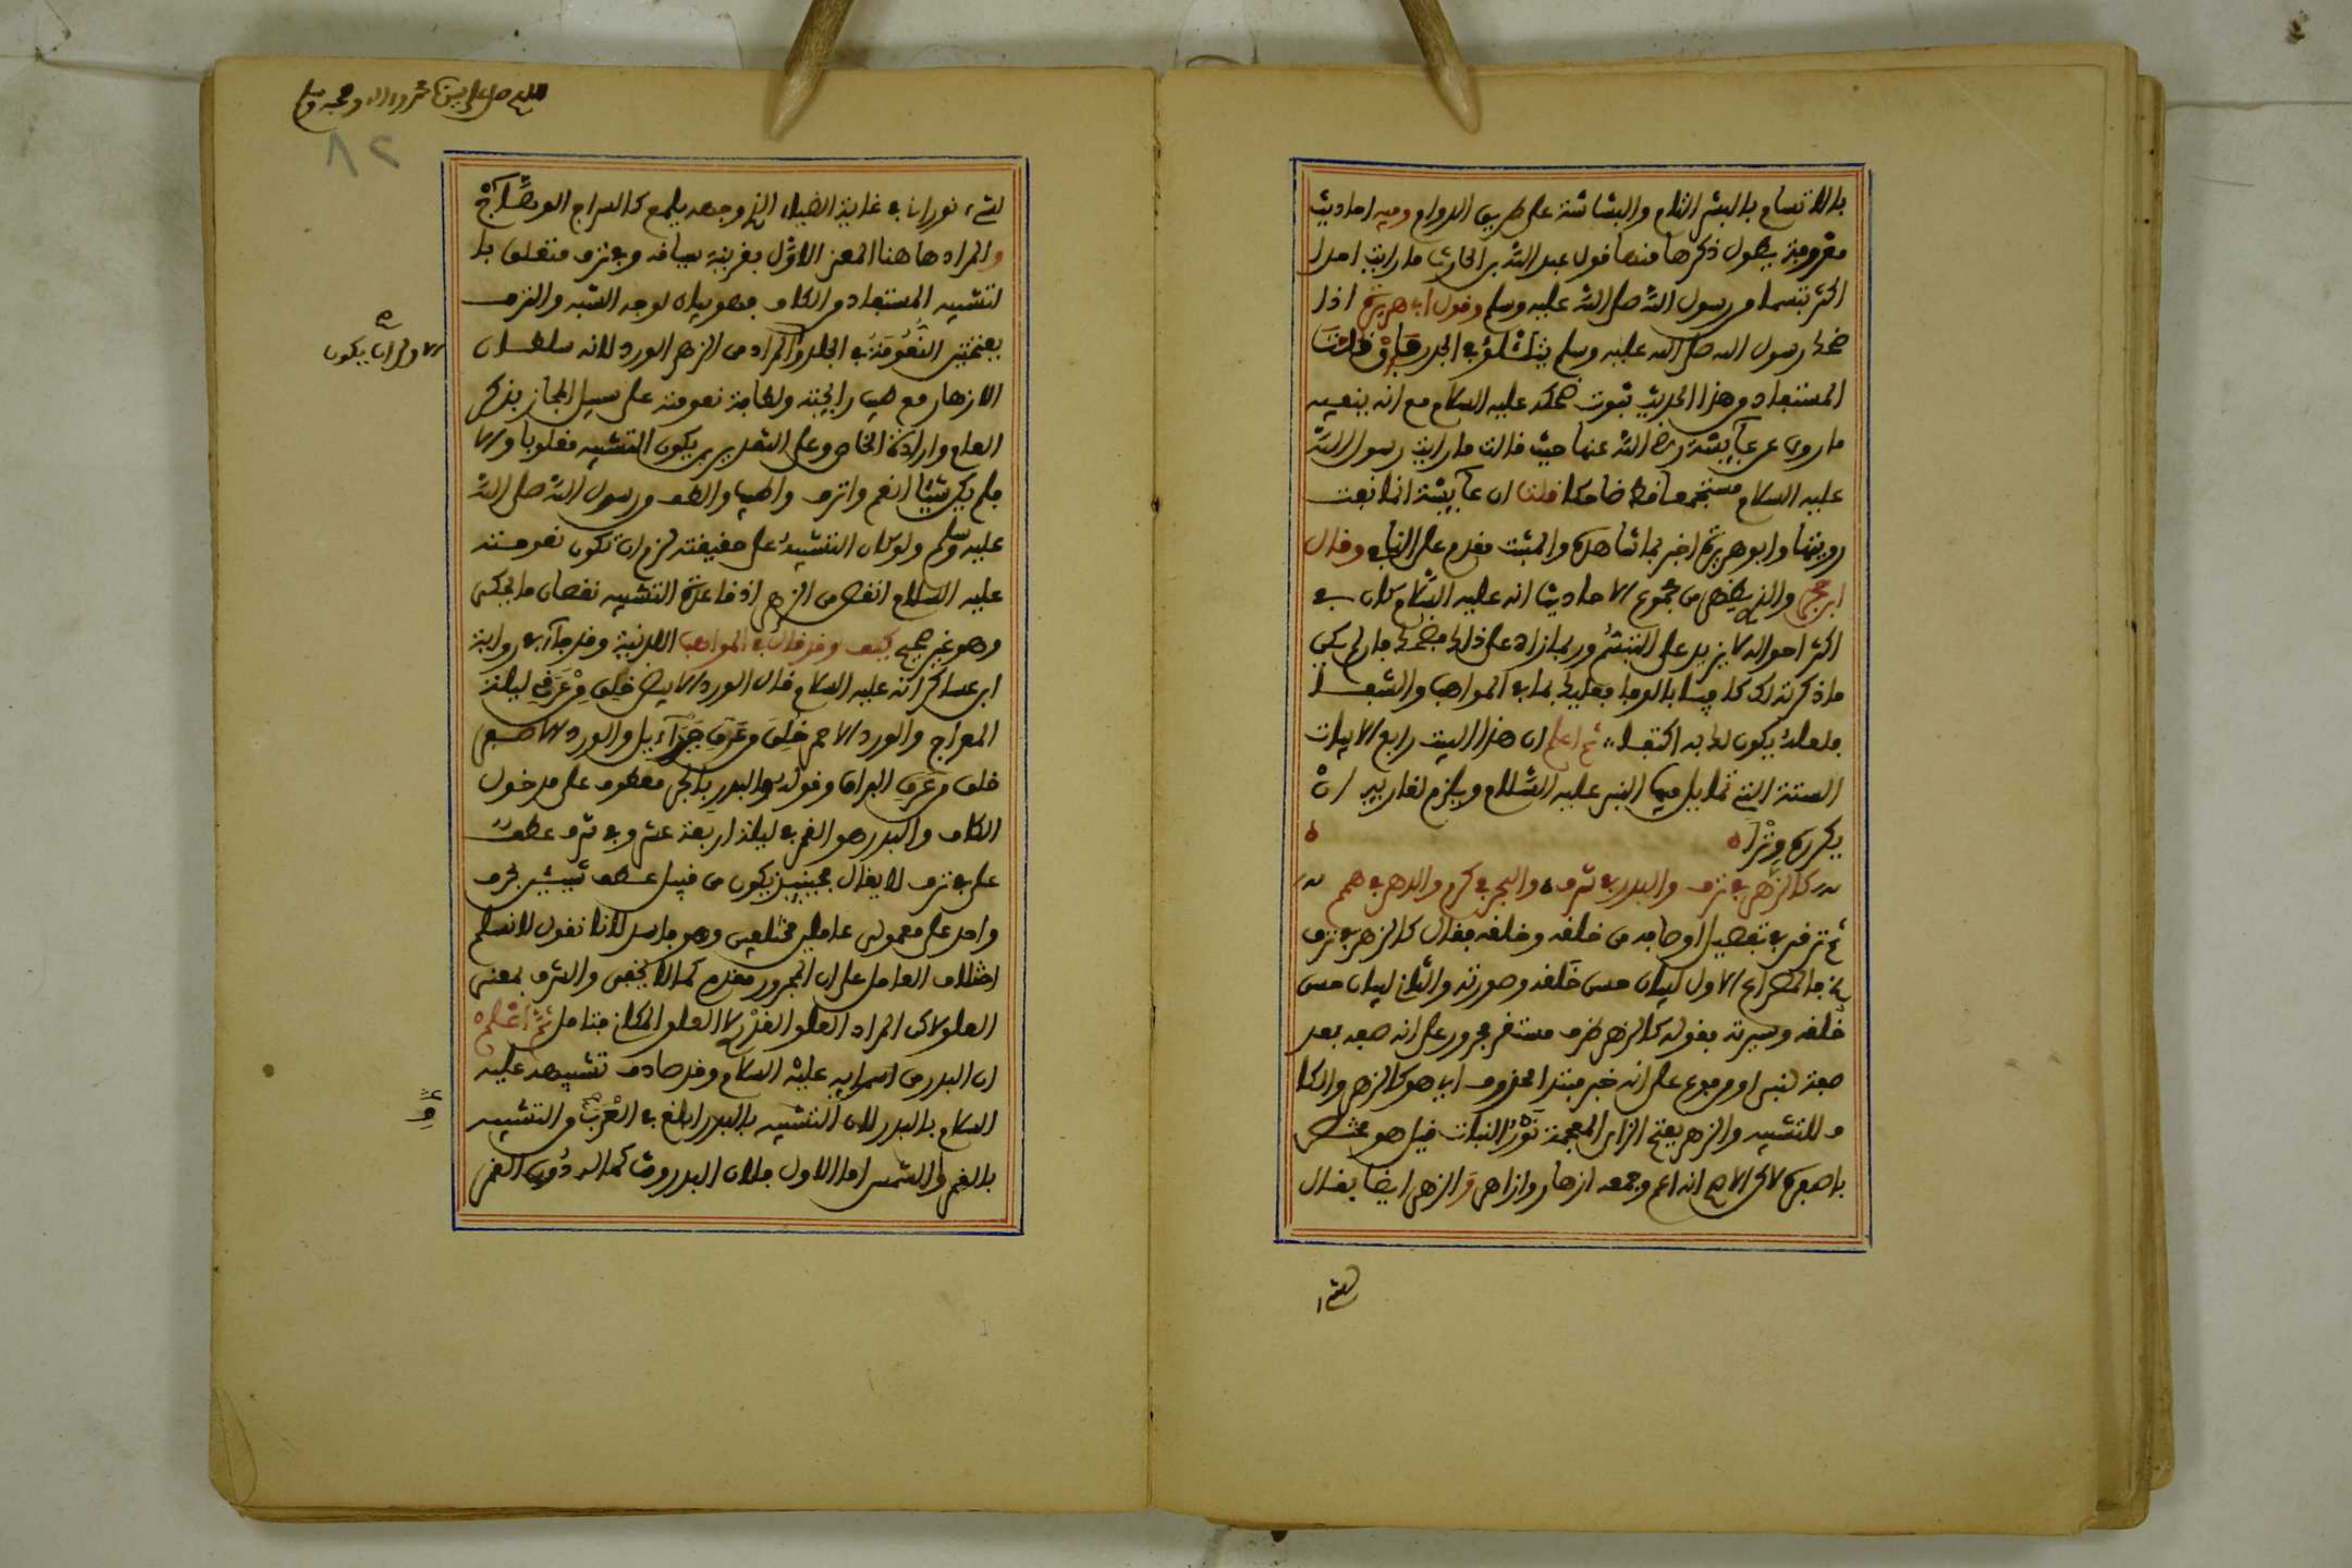 بالاتسام بالبشر التام والبشاشة على طريق الدوام وفيه احاديث
معروفة يطول ذكرها فمنها قول عبد الله بن الحارث ما رايت احدا
اكثر تبسما من رسول الله صلى الله عليه وسلم وقول ابي هريرة اذا
ضحك رسول الله صلى الله عليه وسلم يتلألؤ في الجدر فان قلت
المستفاد من هذا الحديث ثبوت ضحكه عليه السلام مع انه ينفيه
ما روي عن عآيشة رضي الله عنها حيث قالت ما رايت رسول الله
عليه السلام مستجمعا قط ضاحكا قلنا ان عآيشة انما نفت
رويتها وابو هريرة اخبر بما شاهده والمثبت مقدم على النافي وقال
ابن حجر والذي يظهر من مجموع الاحاديث انه عليه السلام كان في
اكثر احواله لا يزيد على التبسم وربما زاد على ذلك فضحك ما لم يكن
ماذكرته لك كافيا بالوفا فعليك بما في المواهب والشفا
فلعله يكون لك به اكتفا ثم اعلم ان هذا البيت رابع الابيات
الستة التي تمايل فيها النبي عليه السلام ويلزم لقارىه ان
يكرره وترا
كالزهر في ترف والبدر في شرف والبحر في كرم والدهر في همم
ثم ترقى في تفصيل اوصافه من خلقه وخلقه فقال كالزهر في ترف
الخ فالمصراع الاول لبيان حسن خلقه وصورته والثاني لبيان حسن
خلقه وسيرته فقوله كالزهر ظرف مستقر مجرور على انه صفة بعد
صفة لنبي او مرفوع على انه خبر مبتدا محذوف اي هو كالزهر والكا
ف للتشبيه والزهر بفتح الزاي المعجمة نور النبات قيل هو مختص
باصفره لاكن الاصح انه اعم وجمعه ازهار وازاهر والزهر ايضا يقال
لشيء
اللهم صل على سيدنا محمد واله وصحبه وسلم
٨٢
لشيء نوراني في غاية الضياء الذي وجهه يلمع كالسراج الوهاج
والمراد هاهنا المعنى الاول بقرينة سياقه وفي ترف متعلق با
لتشبيه المستفاد من الكاف فهو بيان لوجه الشبه والترف
بفتحتين النعومة في الجلد والمراد من الزهر الورد لانه سلطان
الازهار مع طيب رايحته ولطافة نعومته على سبيل المجاز بذكر
العام وارادة الخاص وعلى التقديرين يكون التشبيه مقلوبا والا
صح
والاولى ان يكون
فلم يكن شيئا انعم واترف واطيب والطف من رسول الله صلى الله
عليه وسلم ولو كان التشبيه على حقيقته لزم ان تكون نعومته
عليه السلام انقص من الزهر اذ قاعدة التشبيه نقصان ما يحكى
وهو غير صحيح كيف وقد قال في المواهب اللدنية وقد جآء في رواية
ابن عساكر انه عليه السلام قال الورد الابيض خلق من عرقي ليلة
المعراج والورد الاحمر خلق من عرق جبرآءيل والورد الاصفر
خلق من عرق البراق وقوله والبدر بالجر معطوف على مدخول
الكاف والبدر هو القمر في ليلة اربعة عشر وفي شرف عطف
على في ترف لا يقال فحينيذ يكون من قبيل عطف شيئين بحرف
واحد على معمولي عاملين مختلفين وهو فاسد لانا نقول لا نسلم
اختلاف العامل على ان المجرور مقدم كما لا يخفى والشرف بمعنى
العلو لاكن المراد العلو القدري لا العلو المكاني فتامل ثم اعلم
ان البدر من اسمآيه عليه السلام وقد صادف تشبيهه عليه
السلام بالبدر لان التشبيه بالبدر ابلغ في العرب من التشبيه
بالقمر والشمس اما الاول فلان البدر وقت كماله دون القمر